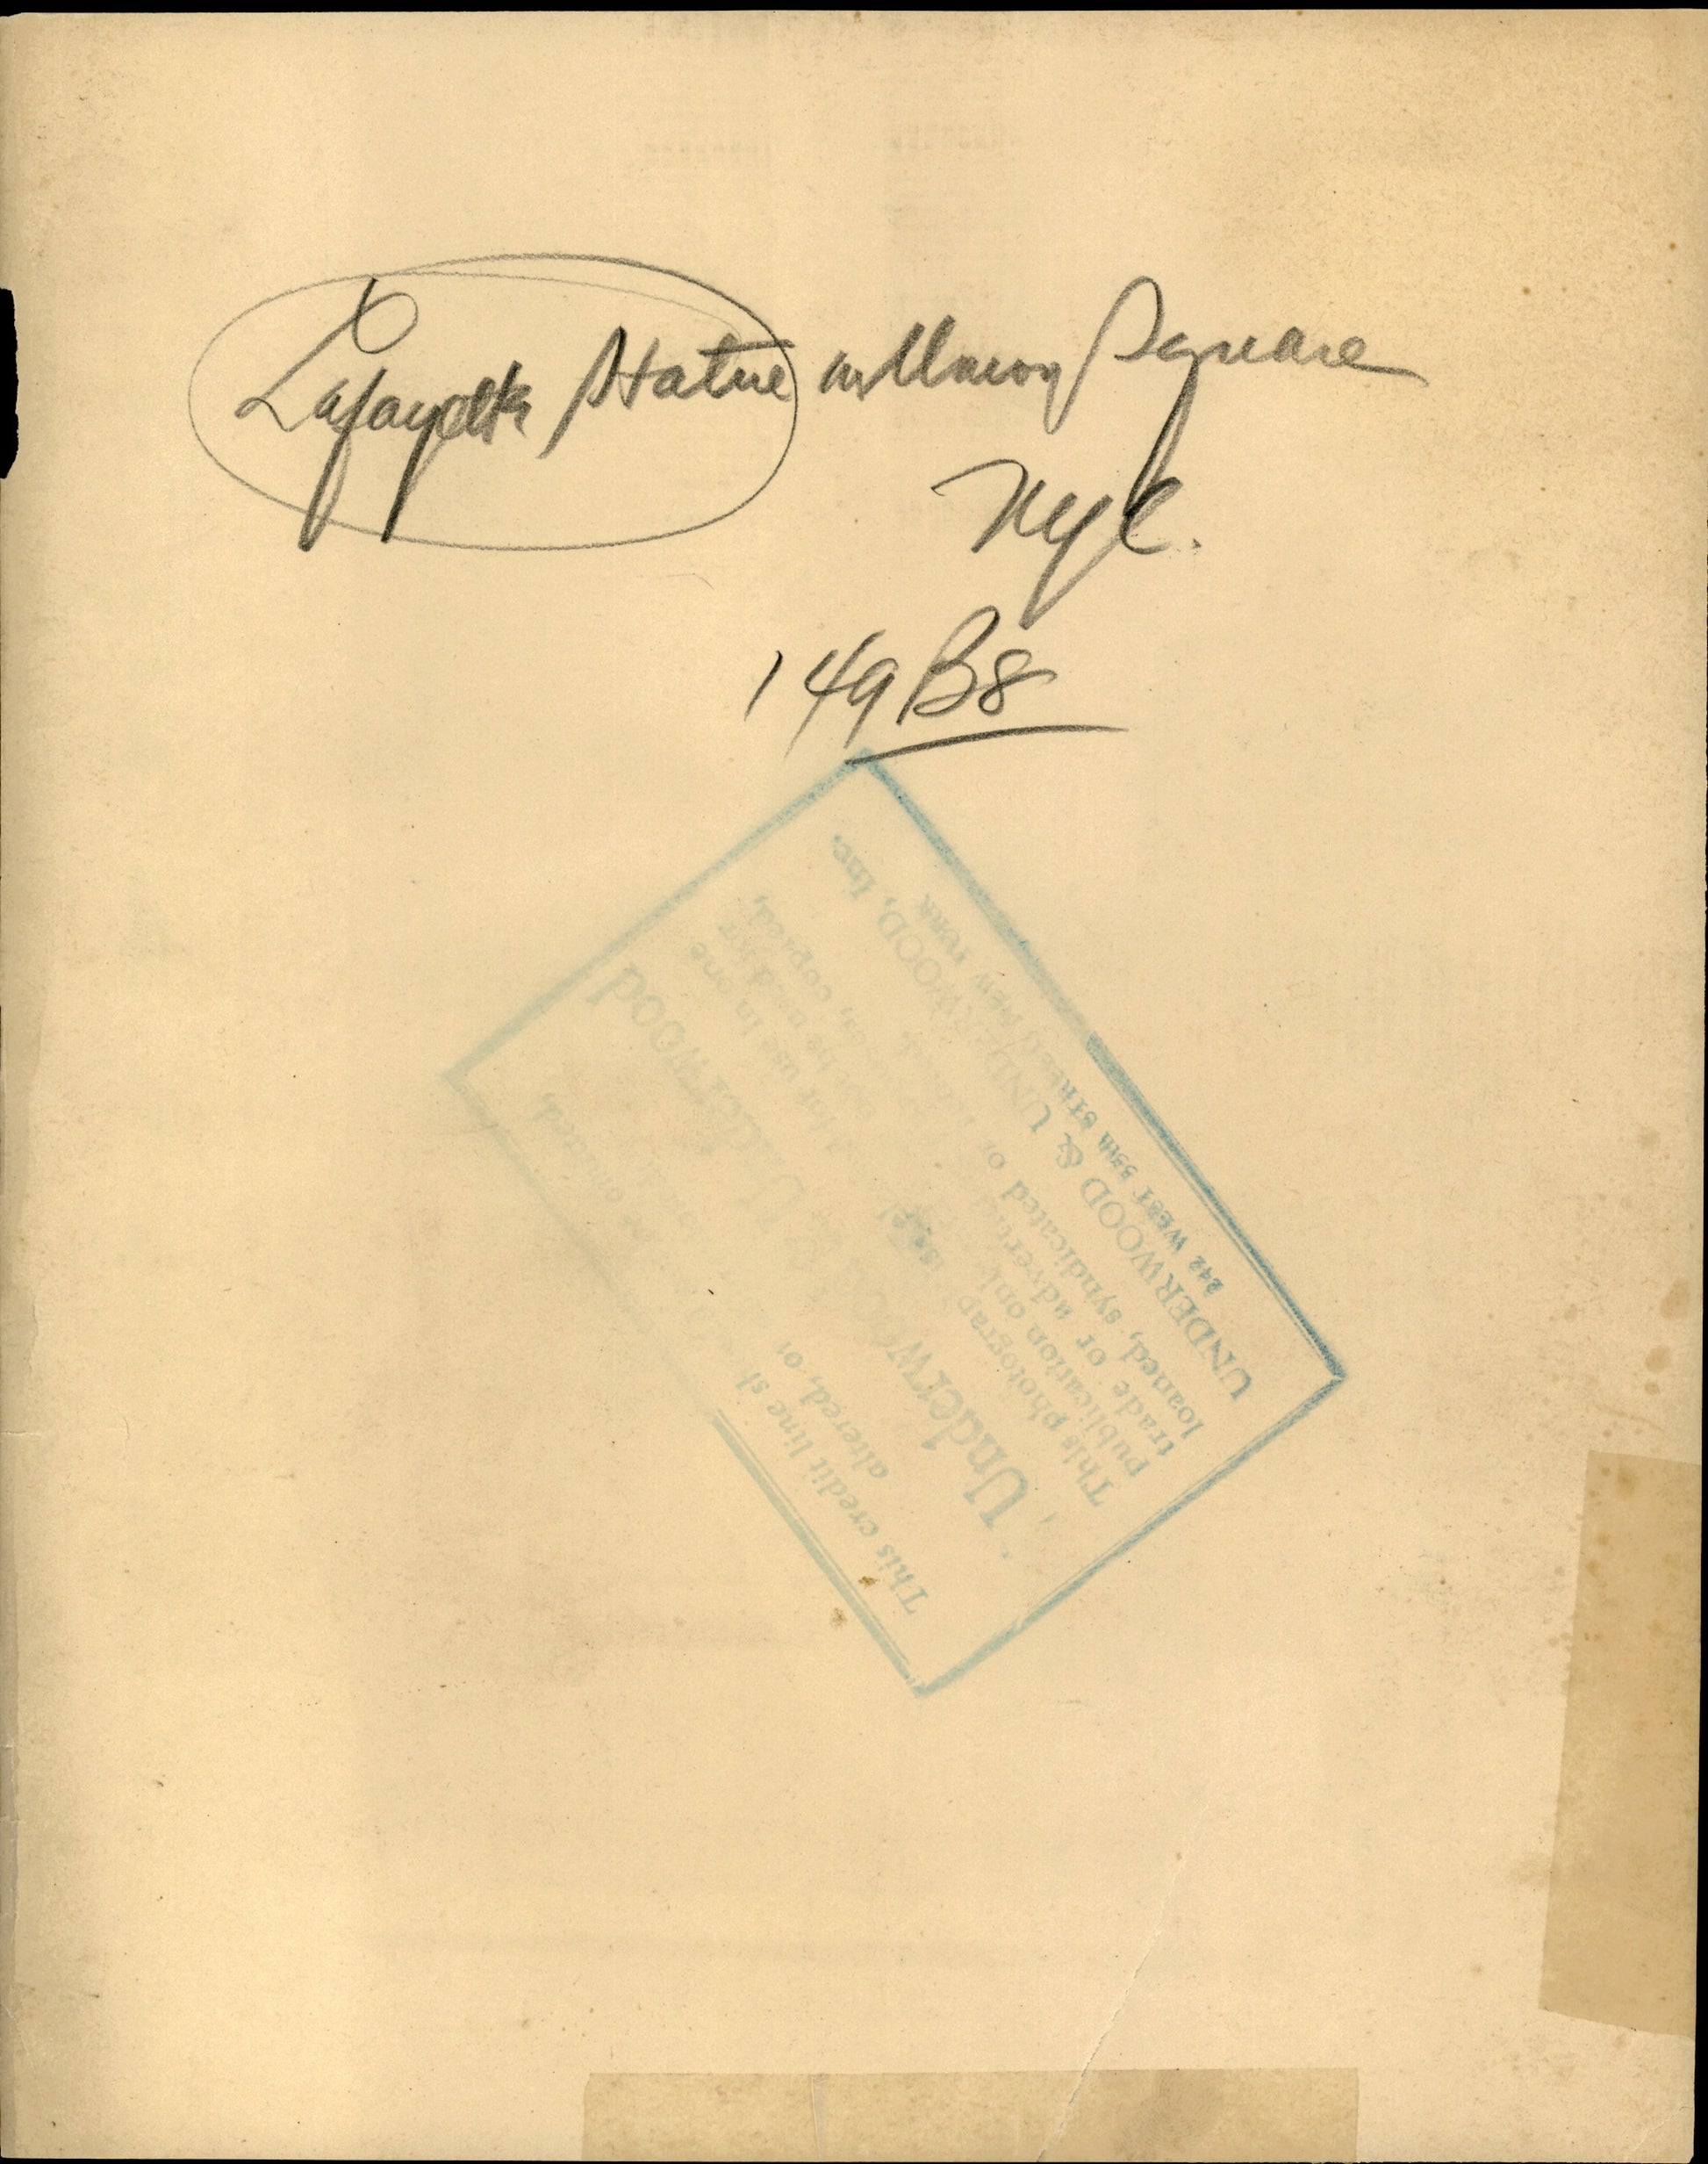 Lafayette Statue in Union Square
NYC.
149B8
This credit line
altered, or be omitted,
Underwood & Underwood
This photograp
publication only not use in one
trade or adverti not be used for
loaned, syndicated or copied,
UNDERWOOD & UNDERWOOD, Inc.
242 WEST 55TH STREET NEW YORK